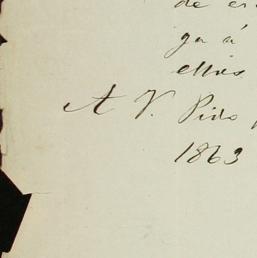 de es
ga á
ellos
A V. Pido
1863